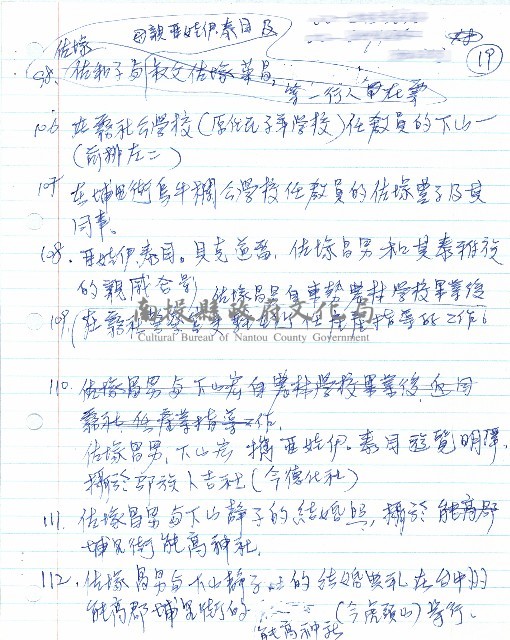 母親亞娃伊泰目及
19
佐塚
98. 佐和子与叔父佐塚菜昌,
等一行人
106. 在霧社公学校(原住民子弟学校)任教員的下山一
(前排左二)
107. 在埔里街烏牛欄公学校任教員的佐塚豊子及其
同事。
108. 亞娃伊泰目。貝克道雷,佐塚昌男和其泰雅族
的親戚合影
佐塚昌男自農林学校畢業後
109. 在霧社 任産業指導所工作。
南投縣政府文化局
Cultural Bureau of Nantou County Government
110. 佐塚昌男与下山宏自農林学校畢業後返回
霧社,任產業指導工作。
佐塚昌男,下山宏 攜亞娃伊。泰目遊覽明潭,
攝於邵族卜吉社(今德化社)
111. 佐塚昌男与下山靜子的結婚照,攝於能高郡
埔里街能高神社。
112. 佐塚昌男与下山靜子 的結婚典礼在台中州
能高郡埔里街的 (今虎頭山)舉行。
能高神社